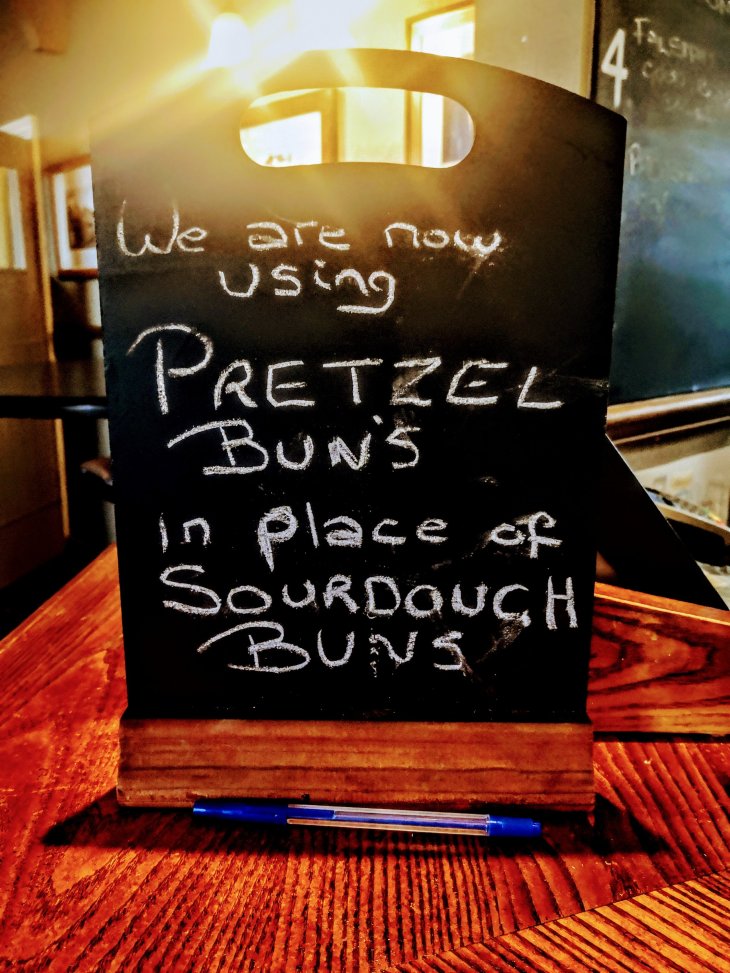 We are now
using
PRETZEL
BUN'S
in place of
SOURDOUGH
BUNS
4